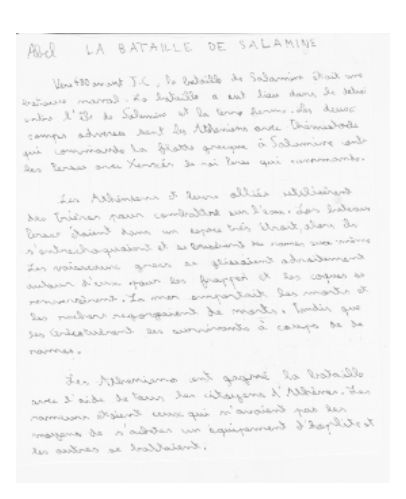 Abel LA BATAILLE DE SALAMINE
Vers 480 avant J.C, la bataille de Salamine était une
naval. La bataille a eut lieu dans le
entre l'île de Salamine et la terre ferme. Les deux
camps adverses sont les Athéniens avec Thémistocle
qui commande la flotte grecque à Salamine
les Perses avec Xerxès le roi Perse qui
Les Athéniens et leurs alliés utilisèrent
des trières pour combattre sur l'eau. Les bateaux
Perses étaient dans un espace très étroit, alors ils
s'entrechoquaient et se brisèrent les rames eux-mêmes
Les vaisseaux grecs se glissaient adroitement
autour d'eux pour les frapper et les coques se
renversèrent. La mer emportait les morts et
les rochers regorgeaient de morts. Tandis que
les survivants à coups de
rames.
Les Athéniens ont gagné la bataille
avec l'aide de tous les citoyens d'Athènes. Les
rameurs étaient ceux qui n'avaient pas les
moyens de s'acheter un équipement d'hoplite et
les autres se battaient.